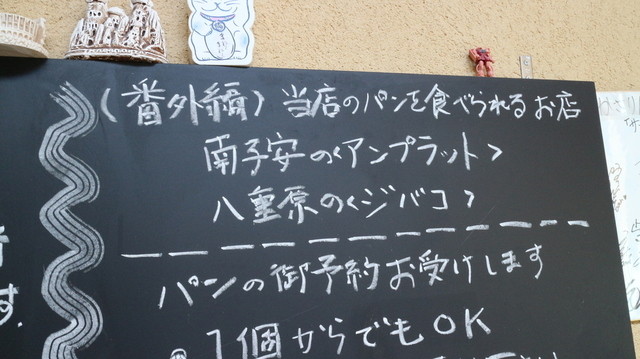 (番外編) 当店のパンを食べられるお店
南子安の<アンプラット>
八重原の<ジバコ>
パンの御予約お受けします
1個からでもOK